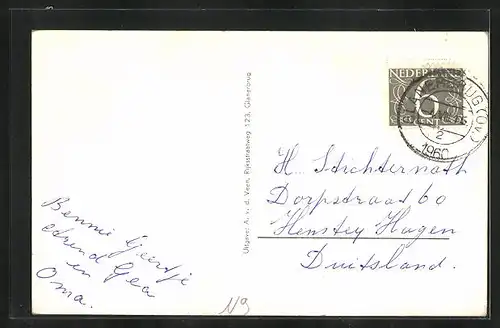 NEDERLAND
6
CENT
2
1960
Uitgave: A. v. d. Veen, Rijksstraatweg 123, Glanerbrug
H. Stichternoth
Dorpstraat 60
Henstey Hagen
Duitsland.
Bennie Geertje
en Gea
Oma.
119